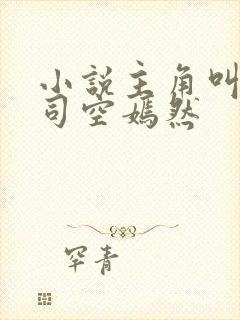 小说主角叫
司空嫣然
罕青